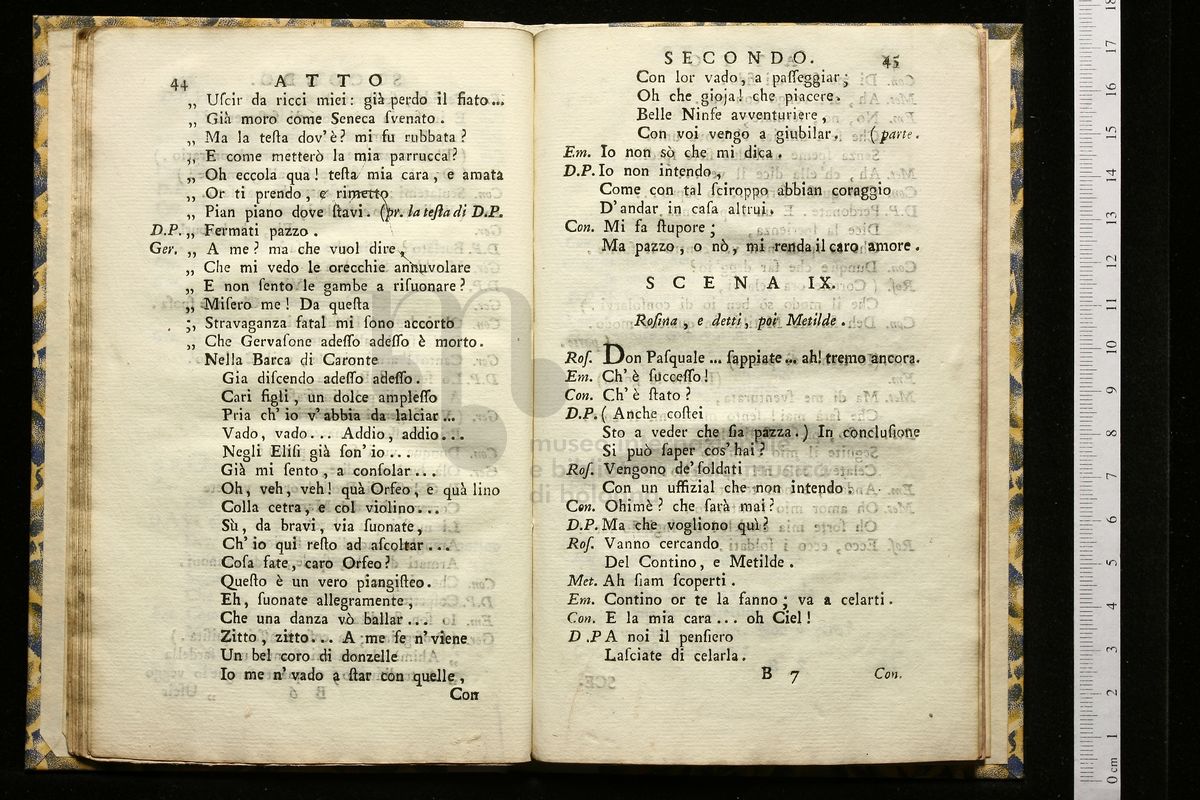 44 ATTO
„ Uſcir da ricci miei: già perdo il fiato...
„ Già moro come Seneca ſvenato.
„ Ma la teſta dov'è? mi fu rubbata?
„ E come metterò la mia parrucca?
„ Oh eccola qua! teſta mia cara, e amata
„ Or ti prendo, e rimetto
„ Pian piano dove ſtavi. (pr. la teſta di D.P.
D.P. „ Fermati pazzo.
Ger. „ A me? ma che vuol dire,
„ Che mi vedo le orecchie annuvolare
„ E non ſento le gambe a riſuonare?
„ Miſero me! Da queſta
„ Stravaganza fatal mi ſono accorto
„ Che Gervaſone adeſſo adeſſo è morto.
Nella Barca di Caronte
Gia diſcendo adeſſo adeſſo.
Cari figli, un dolce ampleſſo
Pria ch'io v'abbia da laſciar...
Vado, vado... Addio, addio...
Negli Eliſi già ſon'io...
Già mi ſento, a conſolar...
Oh, veh, veh! quà Orfeo, e quà lino
Colla cetra, e col violino...
Sù, da bravi, via ſuonate,
Ch'io qui reſto ad aſcoltar...
Coſa fate, caro Orfeo?
Queſto è un vero piangiſteo.
Eh, ſuonate allegramente,
Che una danza vò ballar...
Zitto, zitto... A me ſe n'viene
Un bel coro di donzelle
Io me n'vado a ſtar con quelle,
Con
SECONDO. 45
Con lor vado, a paſſeggiar;
Oh che gioja! che piacere.
Belle Ninfe avventuriere,
Con voi vengo a giubilar. (parte.
Em. Io non sò che mi dica.
D.P. Io non intendo,
Come con tal ſciroppo abbian coraggio
D'andar in caſa altrui.
Con. Mi fa ſtupore;
Ma pazzo, o nò, mi renda il caro amore.
SCENA IX.
Roſina, e detti, poi Metilde.
Roſ. Don Paſquale... ſappiate... ah! tremo ancora.
Em. Ch'è ſucceſſo!
Con. Ch'è ſtato?
D.P. (Anche coſtei
Sto a veder che ſia pazza.) In concluſione
Si può ſaper cos'hai?
Roſ. Vengono de'ſoldati
Con un uffizial che non intendo.
Con. Ohimè? che ſarà mai?
D.P. Ma che vogliono quì?
Roſ. Vanno cercando
Del Contino, e Metilde.
Met. Ah ſiam ſcoperti.
Em. Contino or te la fanno; va a celarti.
Con. E la mia cara... oh Ciel!
D.P A noi il penſiero
Laſciate di celarla.
B 7 Con.